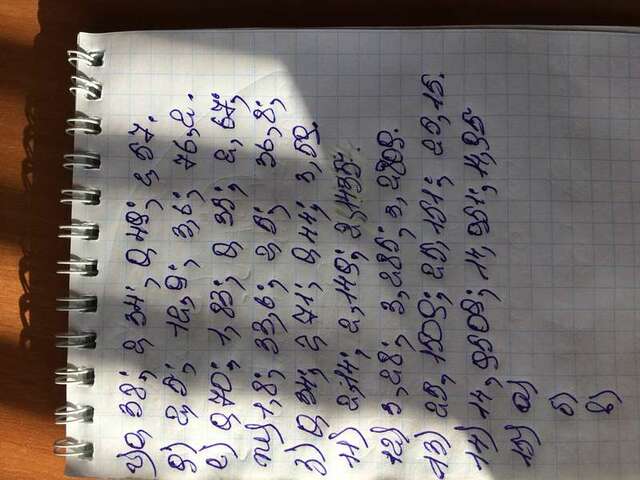 г) 0,38; 2,34; 0,49; 2,57.
д) 2,5; 12,9; 3,6; 76,2.
е) 0,70; 1,83; 0,39; 2,67;
ж) 1,8; 33,6; 2,5; 36,8;
з) 0,34; 2,71; 0,44; 3,59.
11) 2,14; 2,149; 2,1435.
12) 3,28; 3,285; 3,2809.
13) 25,1509; 25,151; 25,15.
14) 14,9509; 14,951; 14,95
15) а)
б)
в)